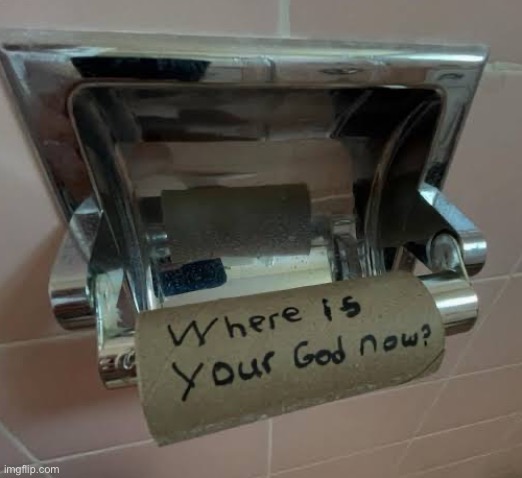 Where is
your God now?
imgflip.com